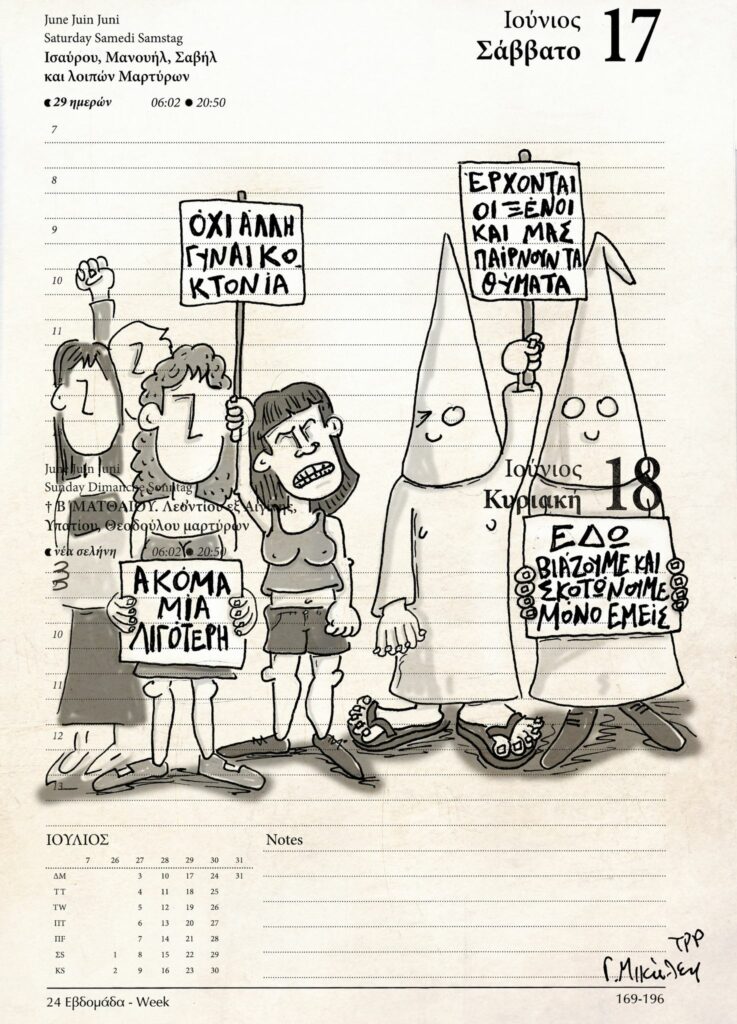 June Juin Juni
Saturday Samedi Samstag
Ισαύρου, Μανουήλ, Σαβήλ
και λοιπών Μαρτύρων
29 ημερών 06:02 ● 20:50
Ιούνιος
Σάββατο 17
7
8
9
10
11
ΌΧΙ ΆΛΛΗ
ΓΥΝΑΙΚΟ
ΚΤΟΝΊΑ
ΈΡΧΟΝΤΑΙ
ΟΙ ΞΈΝΟΙ
ΚΑΙ ΜΑΣ
ΠΑΙΡΝΟΥΝ ΤΑ
ΘΎΜΑΤΑ
June Juin Juni
Sunday Dimanche Sonntag
† Β' ΜΑΤΘΑΙΟΥ. Λεοντίου εξ
Υπατίου, Θεοδούλου μαρτύρων
νέα σελήνη 06:02 ● 20:50
Ιούνιος
Κυριακή 18
ΑΚΌΜΑ
ΜΊΑ
ΛΙΓΌΤΕΡΗ
ΕΔΏ
ΒΙΆΖΟΥΜΕ ΚΑΙ
ΣΚΟΤΏΝΟΥΜΕ
ΜΌΝΟ ΕΜΕΊΣ
10
11
12
13
ΙΟΥΛΙΟΣ
7 26 27 28 29 30 31
ΔΜ 3 10 17 24 31
ΤΤ 4 11 18 25
ΤW 5 12 19 26
ΠΤ 6 13 20 27
ΠF 7 14 21 28
ΣS 1 8 15 22 29
ΚS 2 9 16 23 30
Notes
TPP
24 Εβδομάδα - Week
169-196